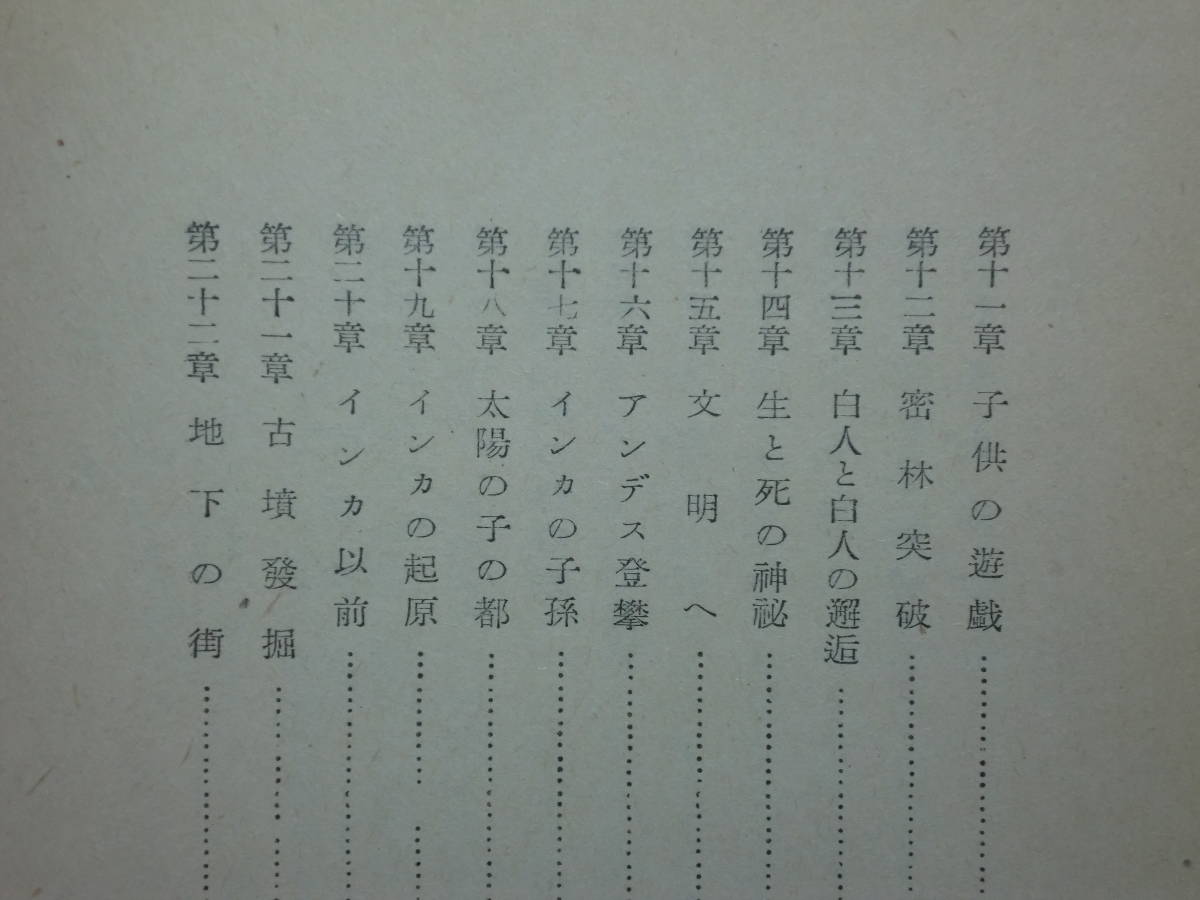 第十一章 子供の遊戯
第十二章 密林突破
第十三章 白人と白人の邂逅
第十四章 生と死の神祕
第十五章 文明へ
第十六章 アンデス登攀
第十七章 インカの子孫
第十八章 太陽の子の都
第十九章 インカの起原
第二十章 インカ以前
第二十一章 古墳發掘
第二十二章 地下の街